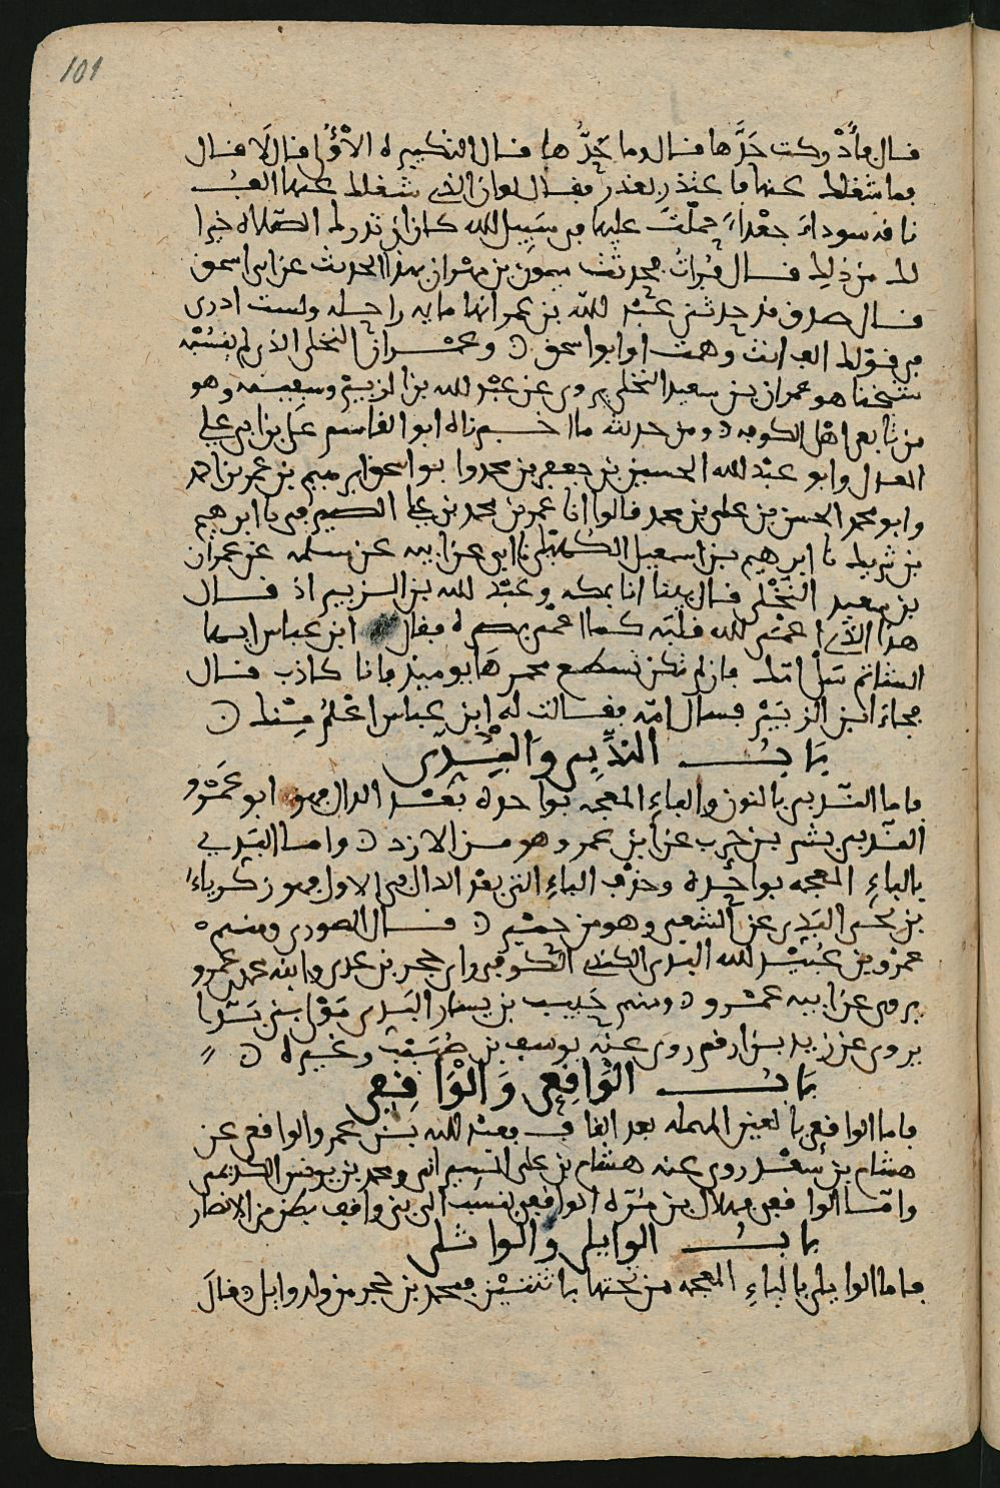 101
قال فأدركت حدها قال وما حدها قال التكبيرة الأولى قال لا قال
فما شغلك عنها فاعتذر بعذر فقال لهان الذي شغلك عنها الف
ناقة سوداء جعداء حملت عليها في سبيل الله كان ان تدرك الصلاة خيرا
لك من ذلك قال فرات فحدثت ميمون بن مهران بهذا الحديث عن ابي اسحق
قال صدق قد حدثني عبد الله بن عمر انها مايه راحلة ولست ادري
في قولك الف انت وهمت او ابو اسحق وعمران النخلي الذي لم ينسبه
شيخنا هو عمران بن سعيد النخلي يروي عن عبد الله بن الزبير وسفينة وهو
من تابعي اهل الكوفة ومن حديثه ما اخبرناه ابو القاسم علي بن ابي علي
المعدل وابو عبد الله الحسين بن جعفر بن محمد وابو اسحق ابرهيم بن عمر بن احمد
وابو محمد الحسن بن علي بن محمد قالوا انا عمر بن محمد بن علي الصيرفي نا ابرهيم
بن شريك نا ابرهيم بن اسمعيل الكهيلي نا ابي عن ابيه عن سلمة عن عمران
بن سعيد النخلي قال بينا انا بمكة وعبد الله بن الزبير اذ قال
هذا الذي اعمى الله قلبه كما اعمى بصره فقال ابن عباس ايها
الشاتم سل امك فان لم تكن تسطع مجمرها يوميذ فانا كاذب قال
فجاء ابن الزبير فسال امه فقالت له ابن عباس اعلم منك
باب الندبي والبدي
فاما الندبي بالنون والباء المعجمة بواحدة بعد الدال فهو ابو عمرو
الندبي بشر بن حرب عن ابن عمر وهو من الازد واما البدي
بالباء المعجمة بواحدة وحذف الباء التي بعد الدال في الاول فهو زكرياء
بن يحيى البدي عن الشعبي وهو من حمير قال الصوري ومنهم
عمرو بن عبيد الله البدي الكندي الكوفي راى حجر بن عدي وابنه محمد بن عمرو
يروي عن ابيه عمرو ومنهم حبيب بن يسار البدي مولى بني بدا
يروي عن زيد بن ارقم روى عنه يوسف بن صهيب وغيره
باب الواقعي والواقفي
فاما الواقعي بالعين المهملة بعد القاف فعبد الله بن عمرو الواقعي عن
هشام بن سعد روى عنه هشام بن علي السيرافي ومحمد بن يونس الكديمي
واما الواقفي فهلال بن مرة الواقفي ينسب الى بني واقف بطن من الانصار
باب الوايلي والواثلي
فاما الوايلي بالياء المعجمة من تحتها باثنتين فمحمد بن حجر من ولد وايل قال